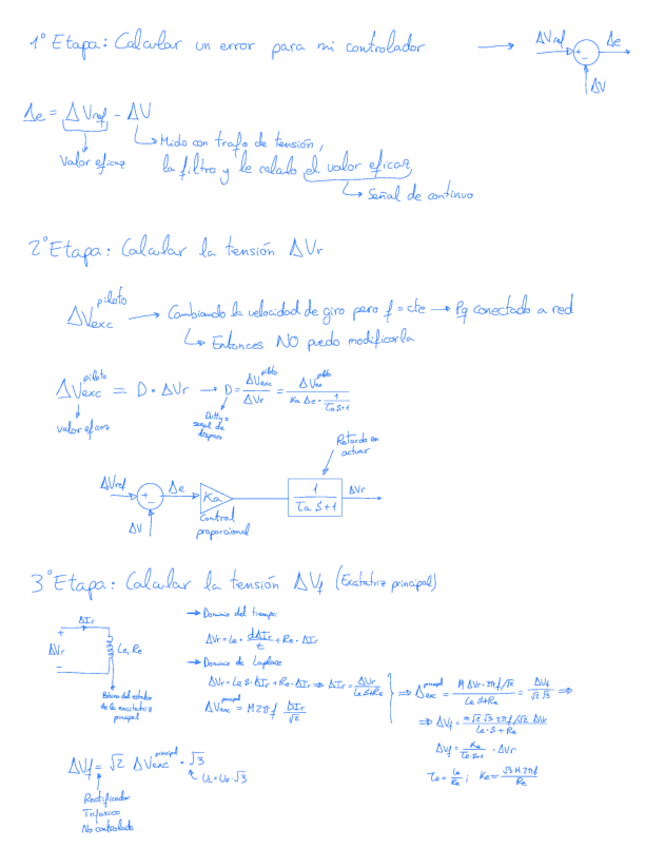 1º Etapa: Calcular un error para mi controlador → ΔVref + - Δe ΔV
Δe = ΔVref - ΔV
Valor eficaz
Mido con trafo de tensión,
la filtro y le calculo el valor eficaz
Señal de continuo
2º Etapa: Calcular la tensión ΔVr
ΔVexc^piloto → Cambiando la velocidad de giro pero f = cte → Pq conectado a red
Entonces NO puedo modificarla
ΔVexc^piloto = D · ΔVr → D = ΔVexc^piloto / ΔVr = ΔVexc^piloto / (Ka Δe · 1/(Ta S+1))
valor eficaz
Dutty = señal de disparo
Retardo en actuar
ΔVref + - Δe Ka 1/(Ta S+1) ΔVr
ΔV
Control proporcional
3º Etapa: Calcular la tensión ΔVf (Excitatriz principal)
→ Dominio del tiempo:
ΔIr
+ ΔVr - Le, Re
ΔVr = Le · dΔIr/t + Re · ΔIr
→ Dominio de Laplace
ΔVr = Le S · ΔIr + Re · ΔIr ⇒ ΔIr = ΔVr/(Le S+Re)
ΔVexc^principal = M 2π f ΔIr/√2
⇒ Δexc^principal = (M ΔVr · 2πf/√2)/(Le S+Re) = ΔVf/(√2 √3) ⇒
Bobina del estator de la excitatriz principal
ΔVf = Ke/(Te·S+1) · ΔVr
ΔVf = √2 ΔVexc^principal · √3
Te = Le/Re ; Ke = √3 M 2πf/Re
Rectificador
Trifasico
No controlado